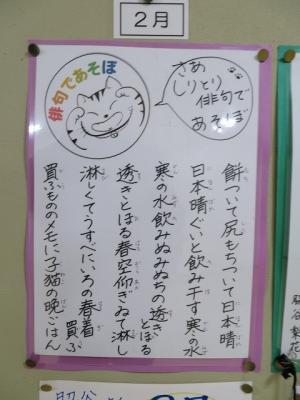 2月
俳句であそぼ
さあ
しりとり
俳句で
あそぼ
餅ついて尻もちついて日本晴
日本晴ぐいと飲み干す寒の水
寒の水飲みぬみぬちの透きとほる
透きとほる春空仰ぎゐて淋し
淋しくてうすべにいろの春着買ふ
買ふもののメモに子猫の晩ごはん